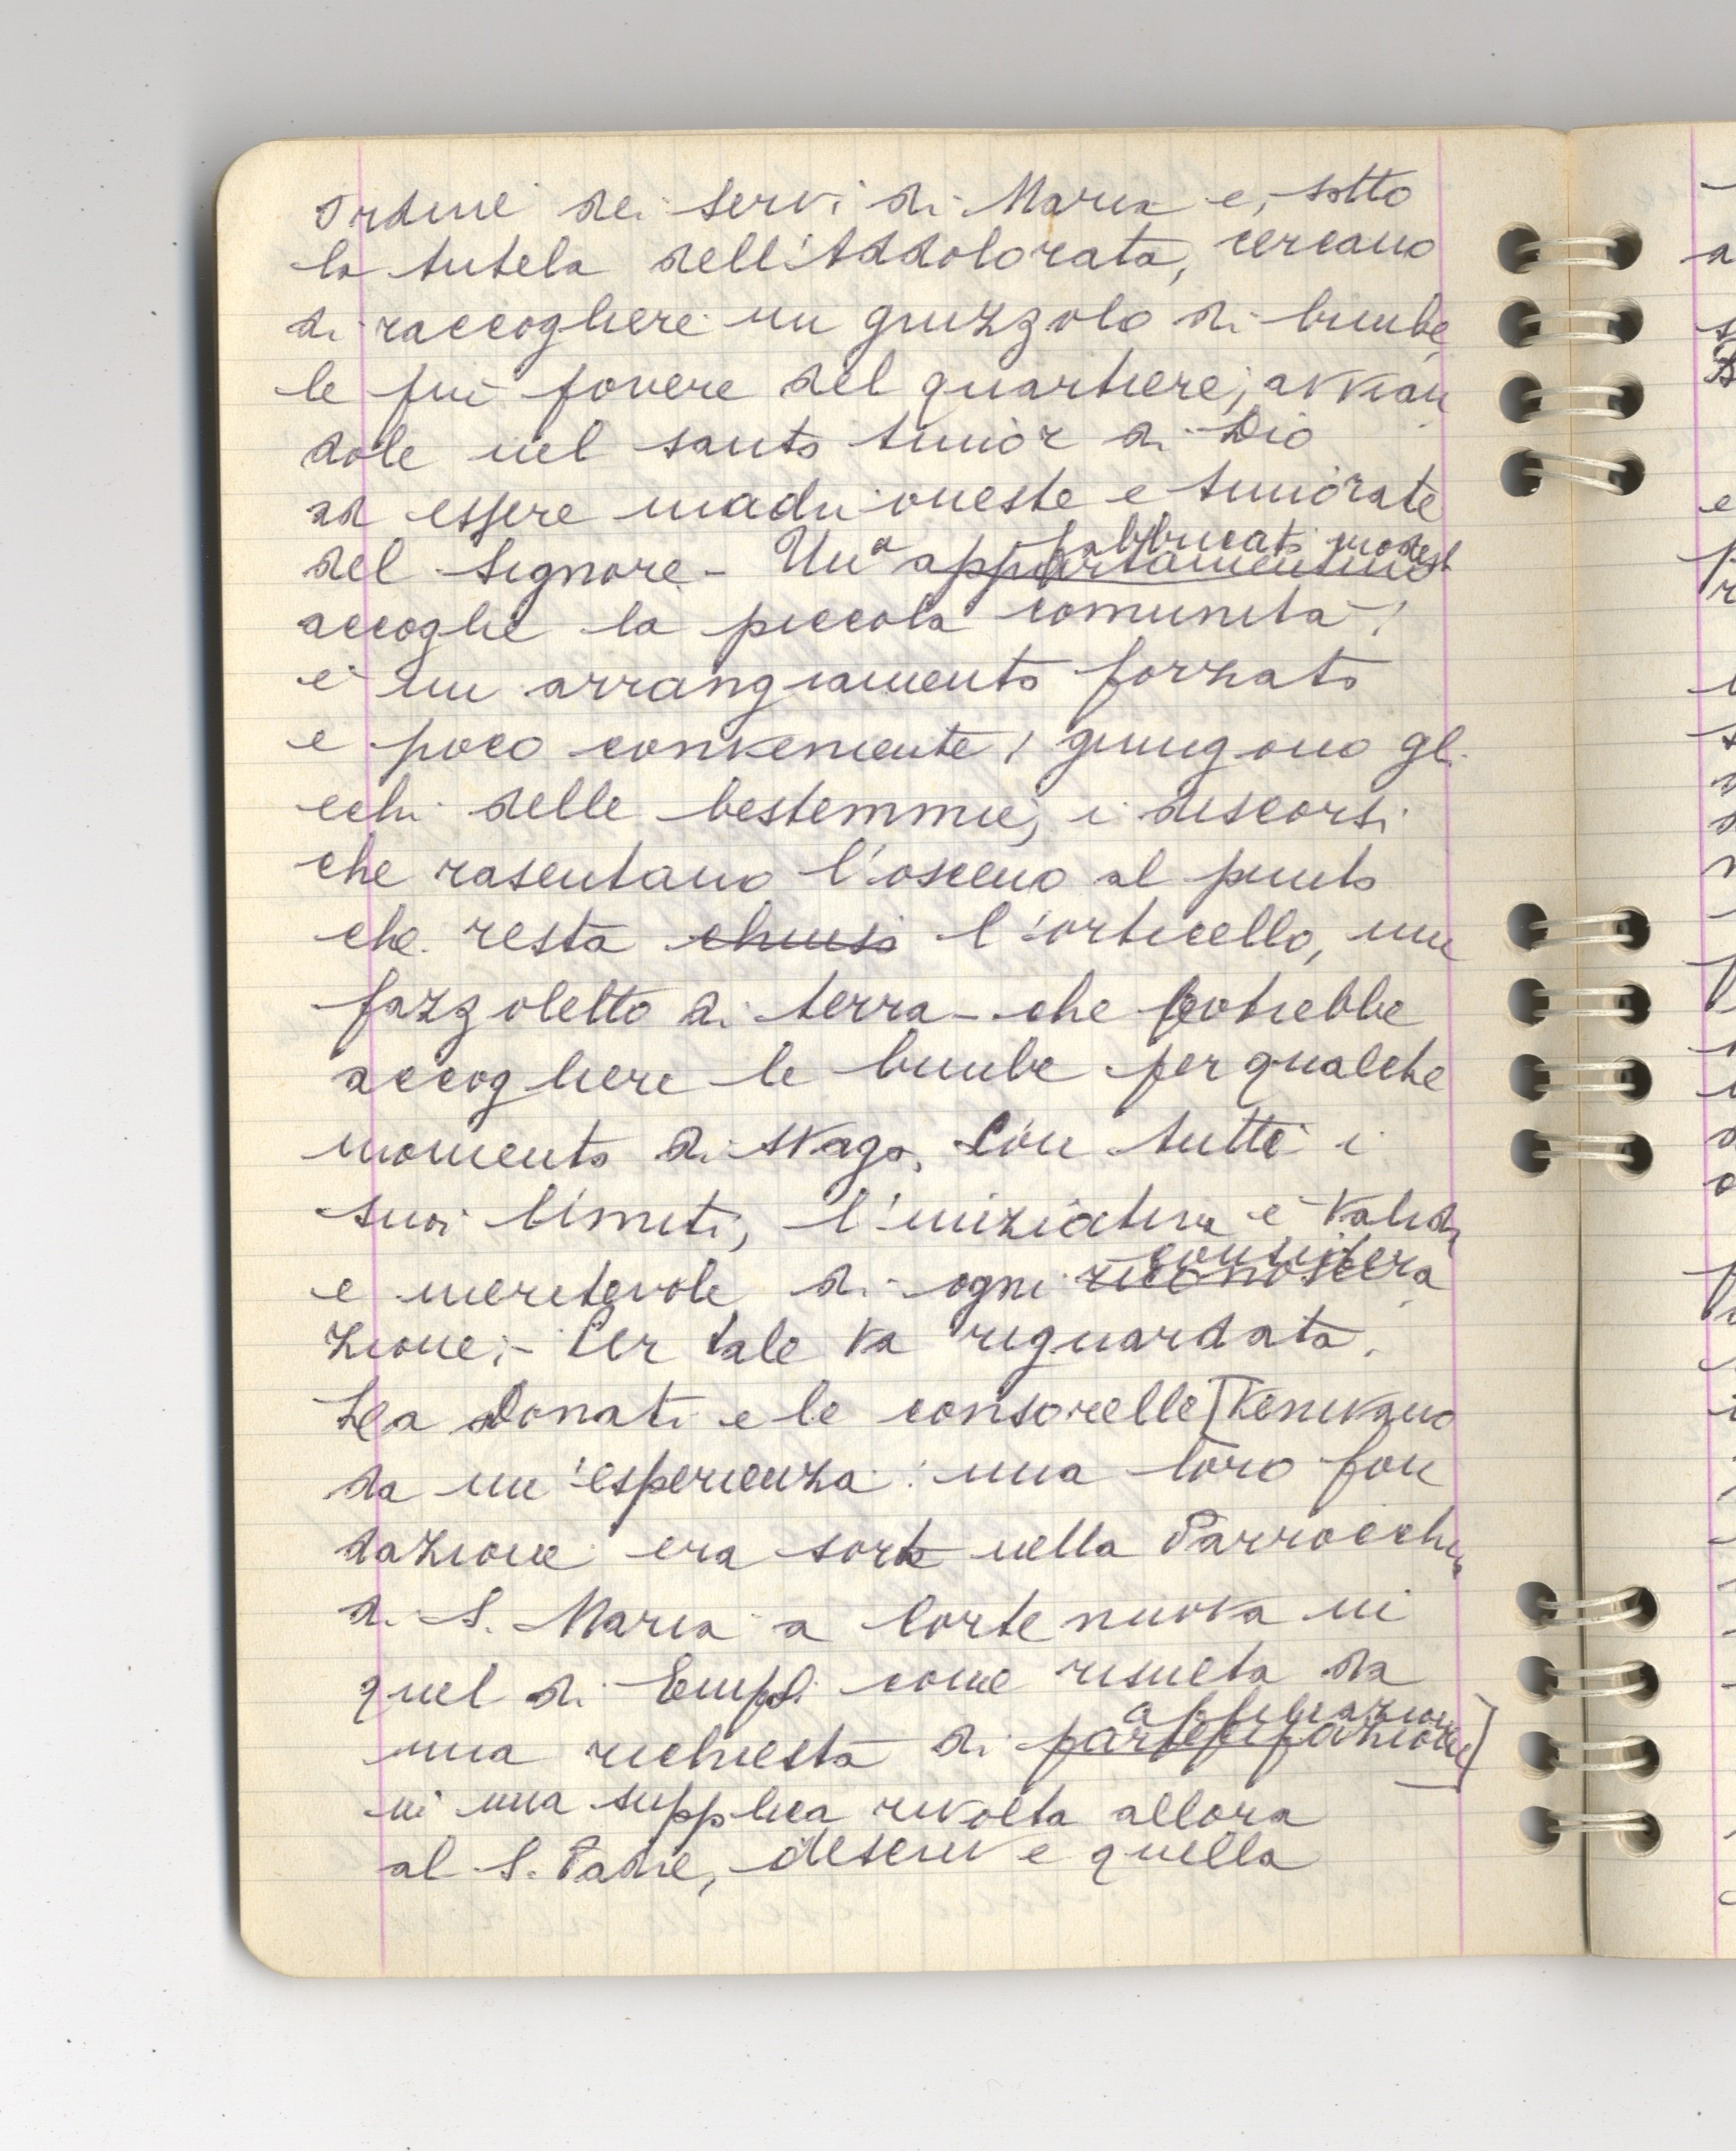 Ordine dei servi di Maria e, sotto
la tutela dell'Addolorata, cercano
di raccogliere un gruzzolo di bimbe,
le più povere del quartiere, avvian
dole nel santo timor di Dio
ad essere madri oneste e timorate
del Signore - Un fabbricato modest
appartamentino
accoglie la piccola comunità;
è un arrangiamento forzato
e poco conveniente; giungono gli
echi delle bestemmie, i discorsi
che rasentano l'osceno al punto
che resta chiuso l'orticello, un
fazzoletto di terra - che potrebbe
accogliere le bimbe per qualche
momento di svago. Con tutti i
suoi limiti, l'iniziativa è valida
considera
e meritevole di ogni riconoscera
zione; - Per tale va riguardata.
Lea Donati e le consorelle [venivano
da un'esperienza: una loro fon
dazione era sorta nella Parrocchia
di S. Maria a Cortenuova in
quel di Empoli come risulta da
affiliazione
una richiesta di partecipazione]
in una supplica rivolta allora
al S. Padre, descrive quella